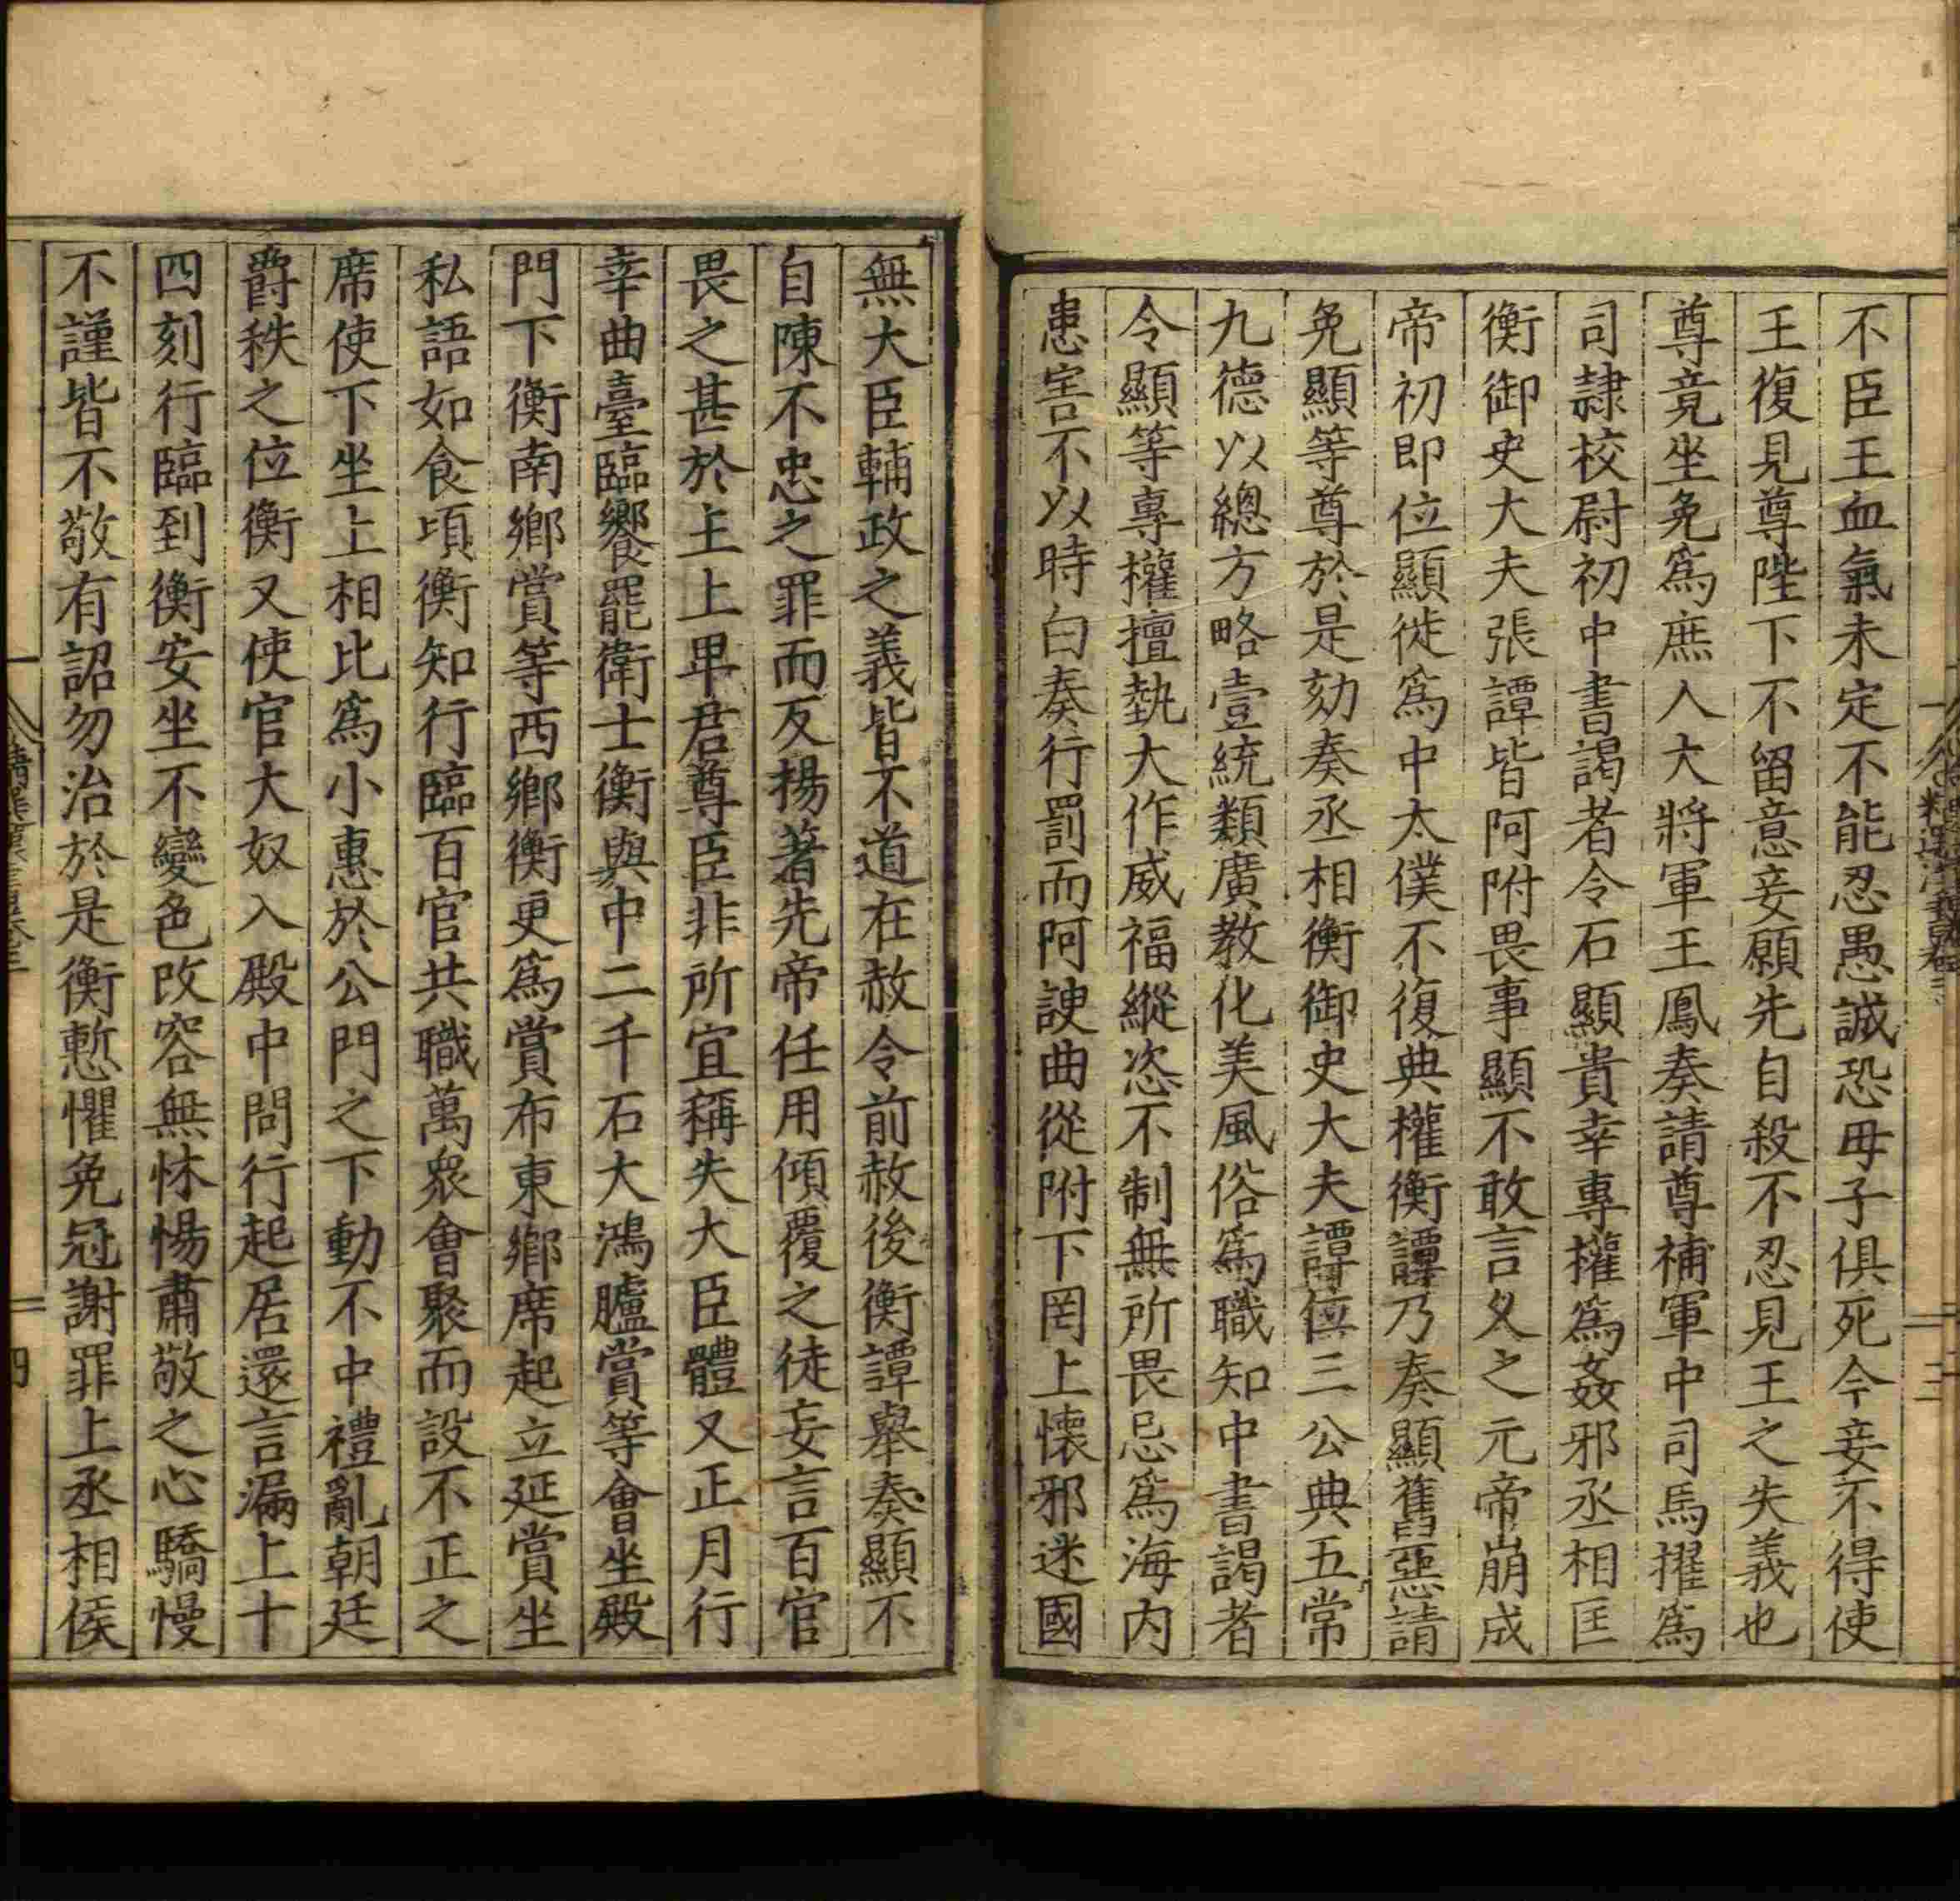 不臣王血氣未定不能忍愚誠恐母子俱死今妾不得使
王復見尊陛下不留意妾願先自殺不忍見王之失義也
尊竟坐免爲庶人大將軍王鳳奏請尊補軍中司馬擢爲
司隷校尉初中書謁者令石顯貴幸專權爲姦邪丞相匡
衡御史大夫張譚皆阿附畏事顯不敢言乆之元帝崩成
帝初即位顯徙爲中太僕不復典權衡譚乃奏顯舊惡請
免顯等尊於是劾奏丞相衡御史大夫譚位三公典五常
九德以總方略壹統類廣教化美風俗爲職知中書謁者
令顯等專權擅埶大作威福縱恣不制無所畏忌爲海内
患害不以時白奏行罰而阿諛曲從附下罔上懷邪迷國
無大臣輔政之義皆不道在赦令前赦後衡譚舉奏顯不
自陳不忠之罪而反揚著先帝任用傾覆之徒妄言百官
畏之甚於主上卑君尊臣非所宜稱失大臣體又正月行
幸曲臺臨饗罷衛士衡與中二千石大鴻臚賞等會坐殿
門下衡南鄉賞等西鄉衡更爲賞布東鄉席起立延賞坐
私語如食頃衡知行臨百官共職萬衆會聚而設不正之
席使下坐上相比爲小惠於公門之下動不中禮亂朝廷
爵秩之位衡又使官大奴入殿中問行起居還言漏上十
四刻行臨到衡安坐不變色改容無怵惕肅敬之心驕慢
不謹皆不敬有詔勿治於是衡慙懼免冠謝罪上丞相侯